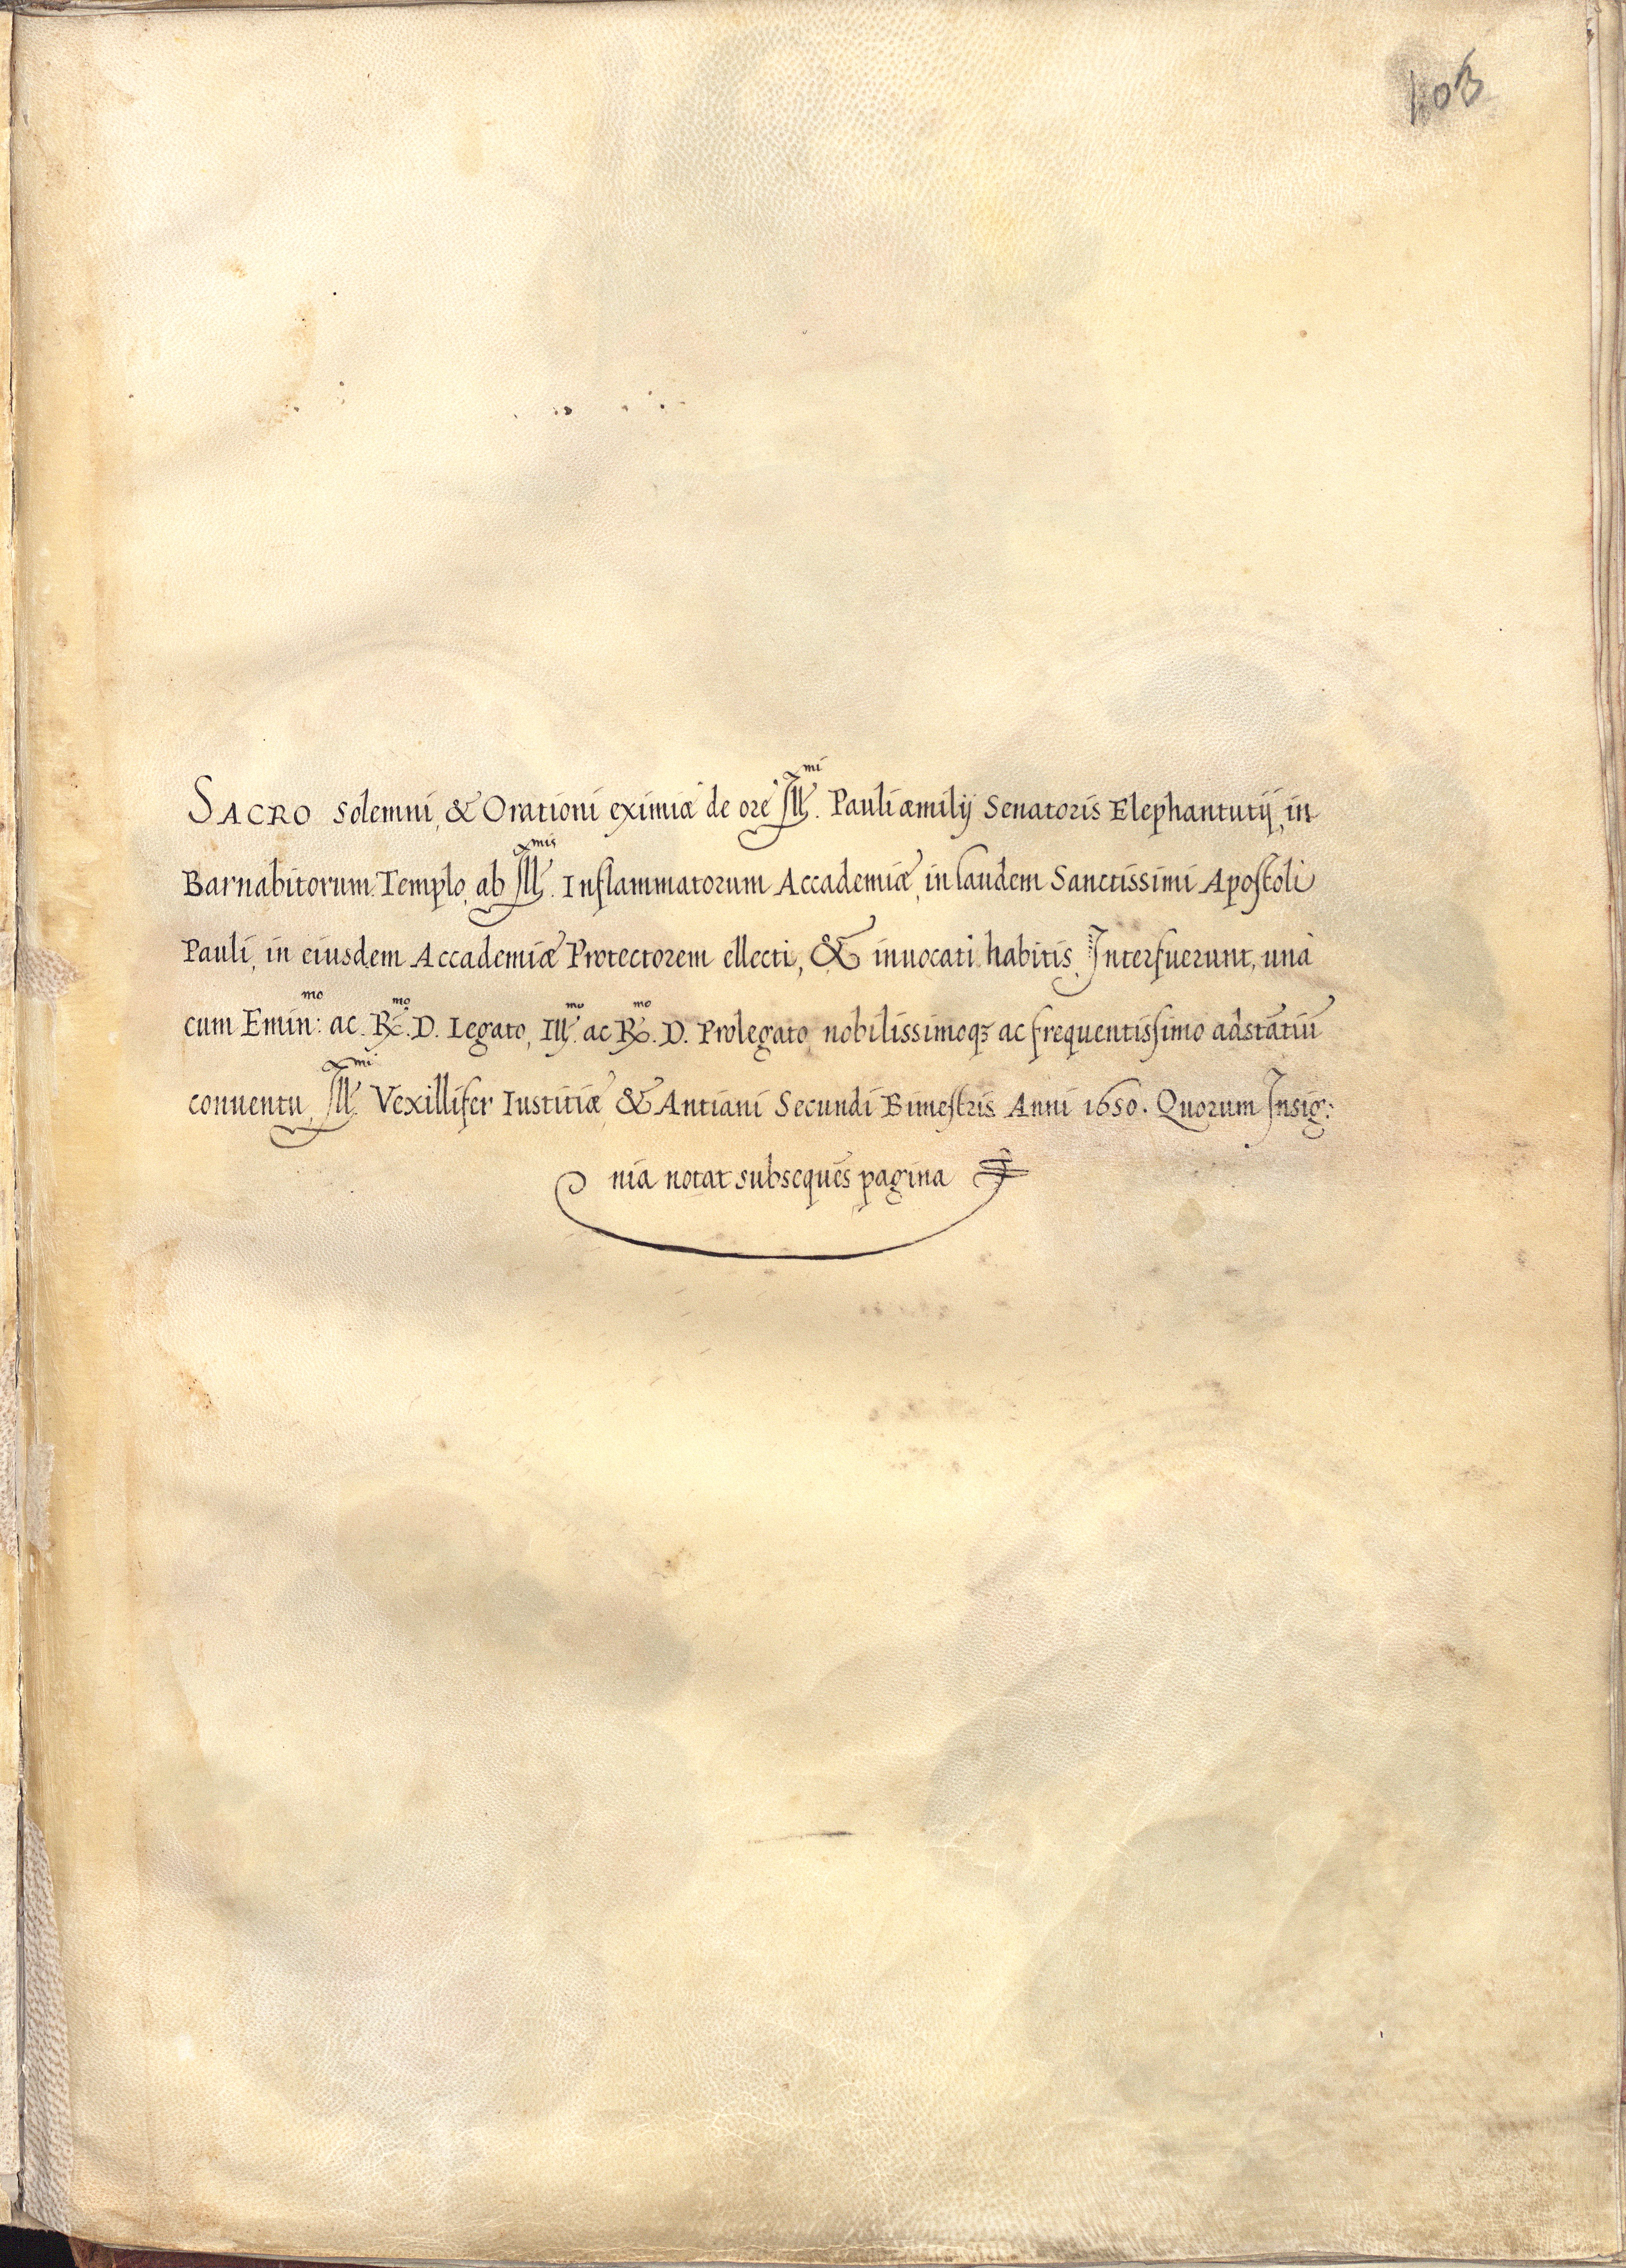 103
SACRO solemni, & Orationi eximiæ de ore Ill.mi Pauli æmilij Senatoris Elephantutij, in
Barnabitorum Templo, ab Ill.mis Inflammatorum Accademiæ, in laudem Sanctissimi Apostoli
Pauli, in eiusdem Accademiæ Protectorem ellecti, & inuocati habitis Interfuerunt, unà
cum Emin:mo ac Re.mo D. Legato, Ill.mo ac R.mo D. Prolegato nobilissimoqȝ ac frequentissimo adstātiū
conuentu, Ill.mi Vexillifer Iustitiæ & Antiani Secundi Bimestris Anni 1650. Quorum Insig:
nia notat subsequēs pagina